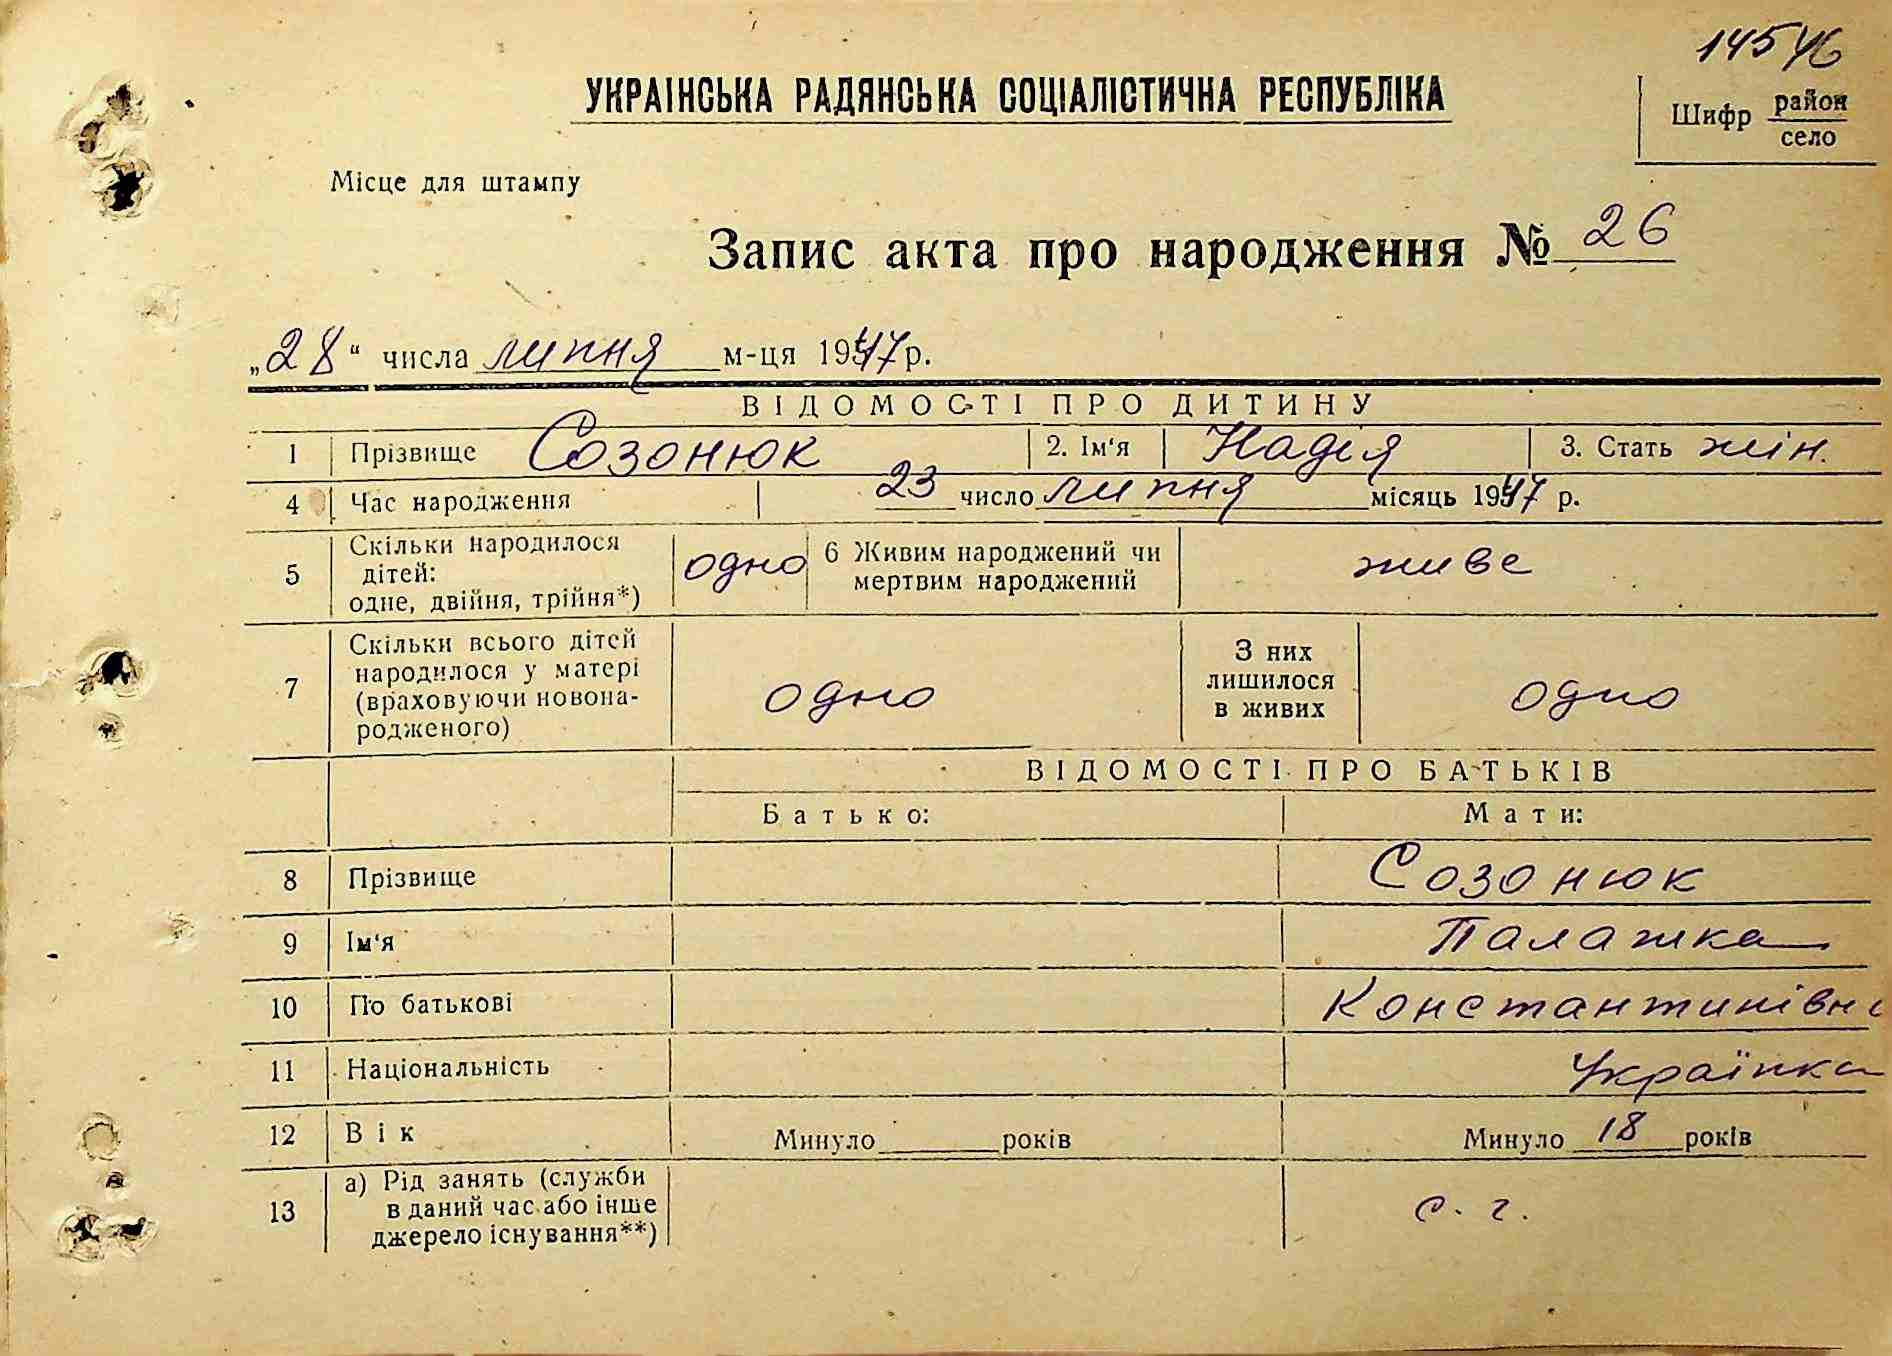 145 46
УКРАІНСЬКА РАДЯНСЬКА СОЦІАЛІСТИЧНА РЕСПУБЛІКА
Шифр район
село
Місце для штампу
Запис акта про народження № 26
„28“ числа липня м-ця 1947 р.
ВІДОМОСТІ ПРО ДИТИНУ
1 Прізвище Созонюк 2. Ім‘я Надія 3. Стать жін.
4 Час народження 23 число липня місяць 1947 р.
5 Скільки народилося дітей: одне, двійня, трійня*) одно 6 Живим народжений чи мертвим народжений живе
7 Скільки всього дітей народилося у матері (враховуючи новона-родженого) одно З них лишилося в живих одно
ВІДОМОСТІ ПРО БАТЬКІВ
Батько: Мати:
8 Прізвище Созонюк
9 Ім‘я Палажка
10 По батькові Константинівна
11 Національність Українка
12 Вік Минуло років Минуло 18 років
13 а) Рід занять (служби в даний час або інше джерело існування**) с. г.